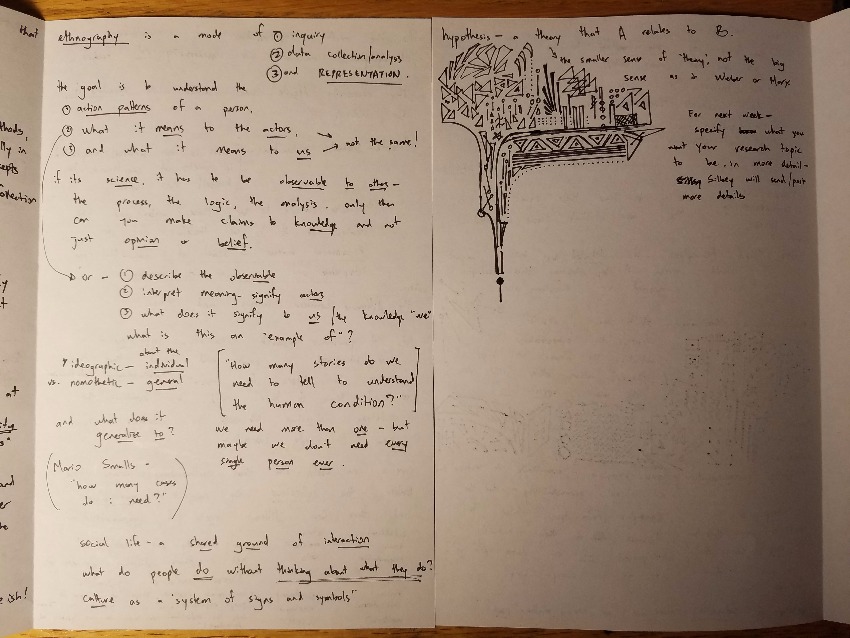 that
thods,
lly in
cepts
ollection
at
and
er
te
e ish!
ethnography is a mode of ① inquiry
② data collection/analysis
③ and REPRESENTATION.
the goal is to understand the
① action patterns of a person,
② what it means to the actors,
③ and what it means to us → not the same!
if its science, it has to be observable to others -
the process, the logic, the analysis. only then
can you make claims to knowledge and not
just opinion or belief.
or - ① describe the observable
② interpret meaning - signify actors
③ what does it signify to us / the knowledge "we"
what is this an "example of"?
about the
* ideographic - individual
vs. nomothetic - general
["How many stories do we
need to tell to understand
the human condition?"]
and what does it
generalize to?
we need more than one - but
maybe we don't need every
single person ever.
(Mario Smalls -
"how many cases
do i need?")
social life - a shared ground of interaction
what do people do without thinking about what they do?
culture as a "system of signs and symbols"
hypothesis - a theory that A relates to B.
the smaller sense of 'theory', not the big
sense as in Weber or Marx
For next week -
specify what you
want your research topic
to be, in more detail -
Silbey will send/post
more details